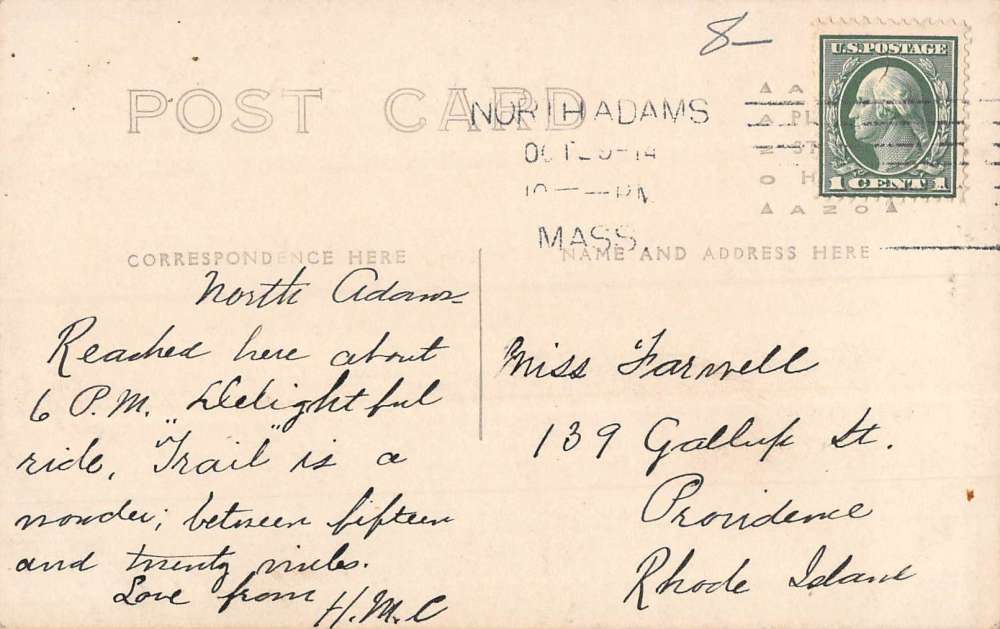 8-
U.S. POSTAGE
1 CENT 1
POST CARD
NORTH ADAMS
OCT 9-14
10 — PM
MASS.
A
A PL
Z ST
O H
A A Z O A
CORRESPONDENCE HERE
NAME AND ADDRESS HERE
North Adams
Reached here about
6 P.M. Delightful
ride, "Trail" is a
wonder; between fifteen
and twenty miles.
Love from H.M.C
Miss Farwell
139 Gallup St.
Providence
Rhode Island